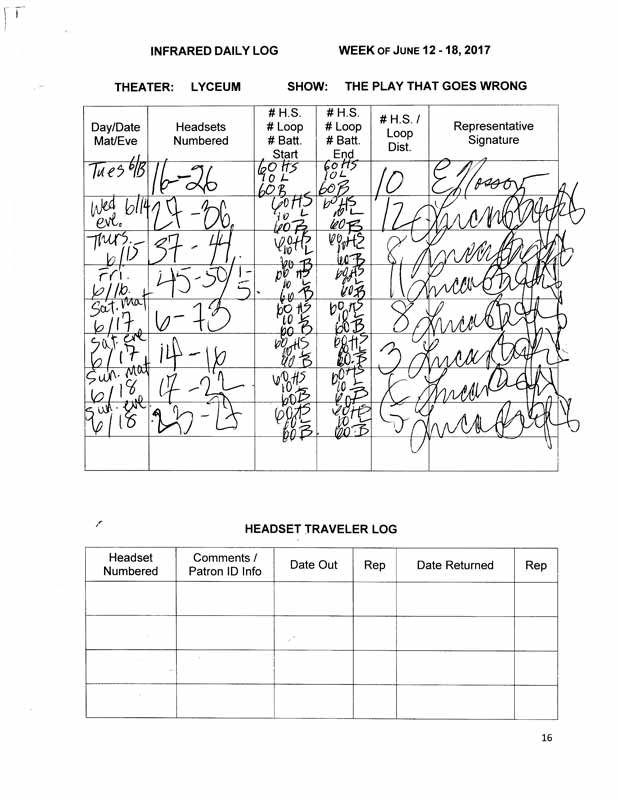 INFRARED DAILY LOG WEEK OF JUNE 12 - 18, 2017
THEATER: LYCEUM SHOW: THE PLAY THAT GOES WRONG
Day/Date Mat/Eve Headsets Numbered # H.S. # Loop # Batt. Start # H.S. # Loop # Batt. End # H.S. / Loop Dist. Representative Signature
Tues 6/13 16-26 60 HS 10 L 60 B 60 HS 10 L 60 B 10
Wed 6/14 eve. 27-36 60 HS 10 L 60 B 60 HS 10 L 60 B 12
Thurs. 6/15 37-44 60 HS 10 L 60 B 60 HS 10 L 60 B 8
Fri. 6/16 45-50/1-5 60 HS 10 L 60 B 60 HS 10 L 60 B 11
Sat. mat 6/17 6-73 60 HS 10 60 B 60 HS 10 60 B 8
Sat. eve 6/17 14-16 60 HS 10 L 60 B 60 HS 10 L 60 B 3
Sun. mat 6/18 17-22 60 HS 10 L 60 B 60 HS 10 L 60 B
Sun. eve 6/18 23-27 60 HS 10 60 B 60 HS 10 60 B 5
HEADSET TRAVELER LOG
Headset Numbered Comments / Patron ID Info Date Out Rep Date Returned Rep
16